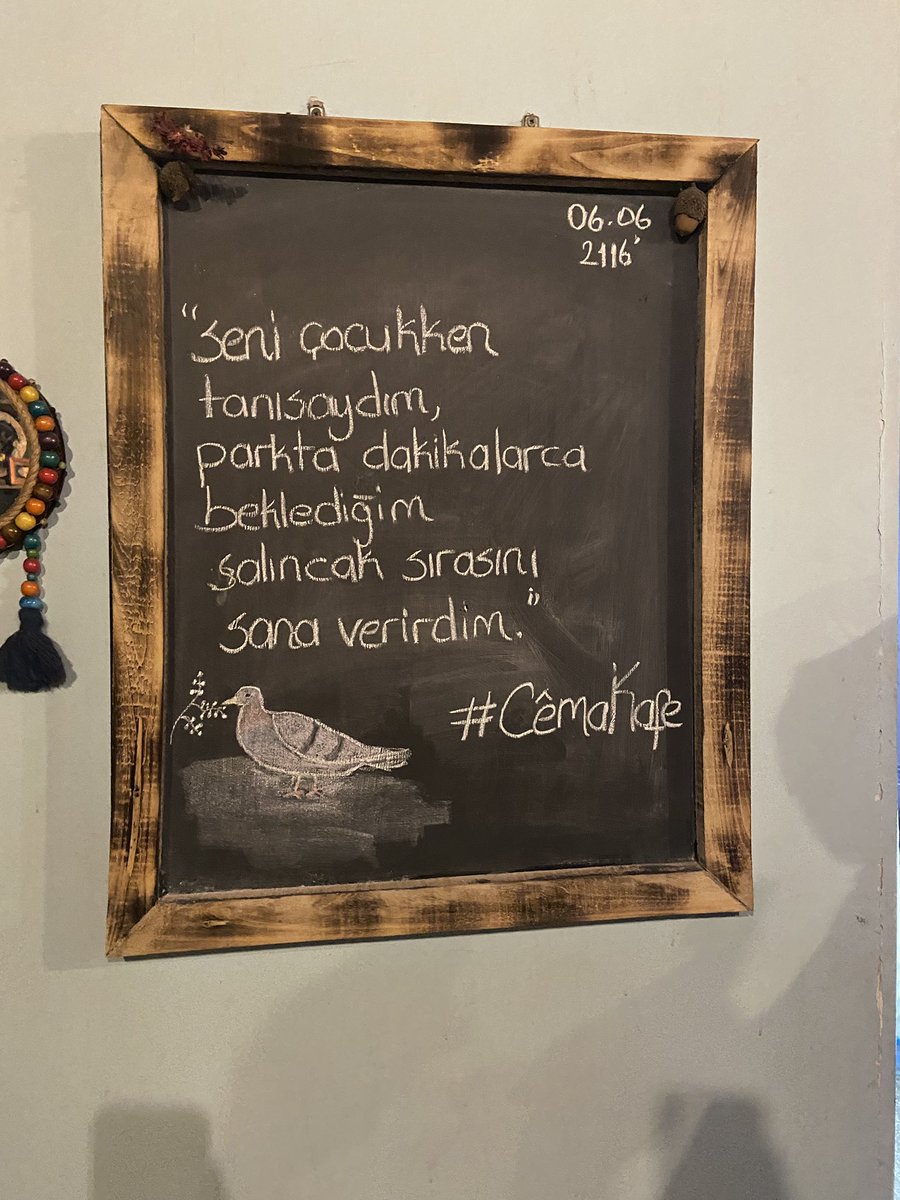 06.06
2116'
"Seni çocukken
tanısaydım,
parkta dakikalarca
beklediğim
şalıncak sırasını
sana verirdim."
#CêmaKafe